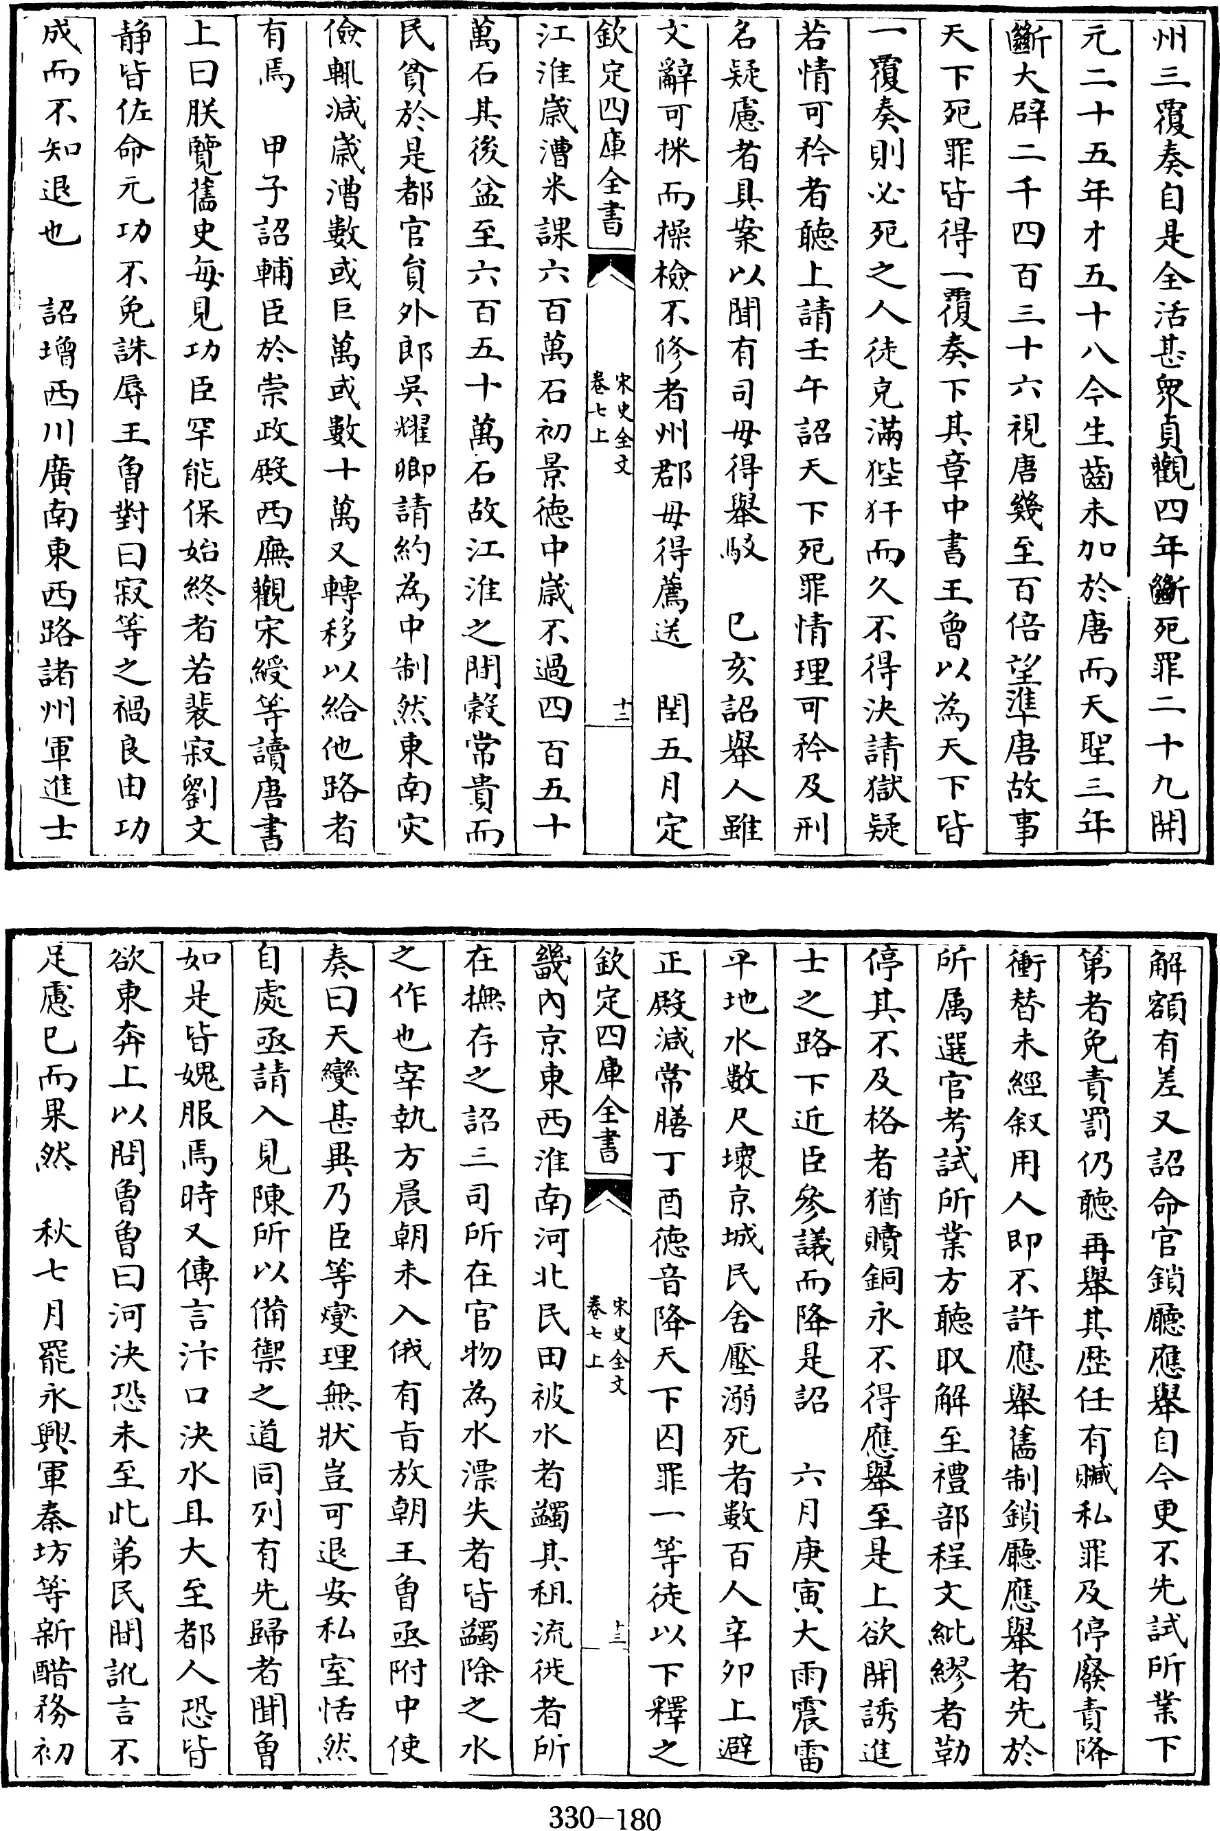 州三覆奏自是全活甚衆貞觀四年斷死罪二十九開
元二十五年才五十八今生齒未加於唐而天聖三年
斷大辟二千四百三十六視唐幾至百倍望準唐故事
天下死罪皆得一覆奏下其章中書王曾以為天下皆
一覆奏則必死之人徒充滿狴犴而久不得決請獄疑
若情可矜者聽上請壬午詔天下死罪情理可矜及刑
名疑慮者具案以聞有司毋得舉駁　己亥詔舉人雖
文辭可採而操檢不修者州郡毋得薦送　閏五月定
欽定四庫全書
宋史全文
卷七上
十二
江淮歲漕米課六百萬石初景德中歲不過四百五十
萬石其後益至六百五十萬石故江淮之間穀常貴而
民貧於是都官員外郎吳耀卿請約為中制然東南災
儉輒減歲漕數或巨萬或數十萬又轉移以給他路者
有焉　甲子詔輔臣於崇政殿西廡觀宋綬等讀唐書
上曰朕覽舊史每見功臣罕能保始終者若裴寂劉文
靜皆佐命元功不免誅辱王曾對曰寂等之禍良由功
成而不知退也　詔增西川廣南東西路諸州軍進士
解額有差又詔命官鎖廳應舉自今更不先試所業下
第者免責罰仍聽再舉其歷任有贓私罪及停廢責降
衝替未經叙用人即不許應舉舊制鎖廳應舉者先於
所屬選官考試所業方聽取解至禮部程文紕繆者勒
停其不及格者猶贖銅永不得應舉至是上欲開誘進
士之路下近臣參議而降是詔　六月庚寅大雨震雷
平地水數尺壞京城民舍壓溺死者數百人辛卯上避
正殿減常膳丁酉德音降天下囚罪一等徒以下釋之
欽定四庫全書
宋史全文
卷七上
十三
畿內京東西淮南河北民田被水者蠲其租流徙者所
在撫存之詔三司所在官物為水漂失者皆蠲除之水
之作也宰執方晨朝未入俄有旨放朝王曾亟附中使
奏曰天變甚異乃臣等燮理無狀豈可退安私室恬然
自處亟請入見陳所以備禦之道同列有先歸者聞曾
如是皆媿服焉時又傳言汴口決水且大至都人恐皆
欲東奔上以問曾曾曰河決恐未至此第民間訛言不
足慮已而果然　秋七月罷永興軍秦坊等新醋務初
330-180